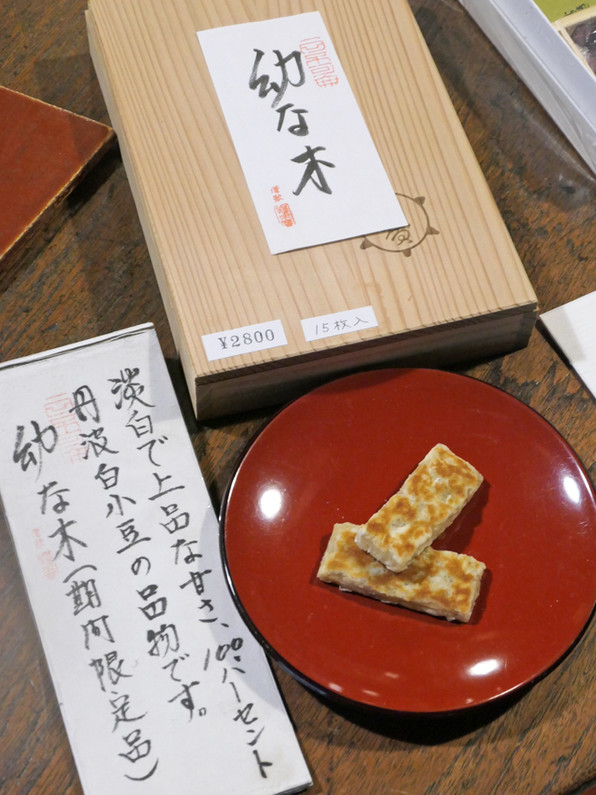 幼な木
¥2800
15枚入
淡白で上品な甘さ、100パーセント
丹波白小豆の品物です。
幼な木(期間限定品)